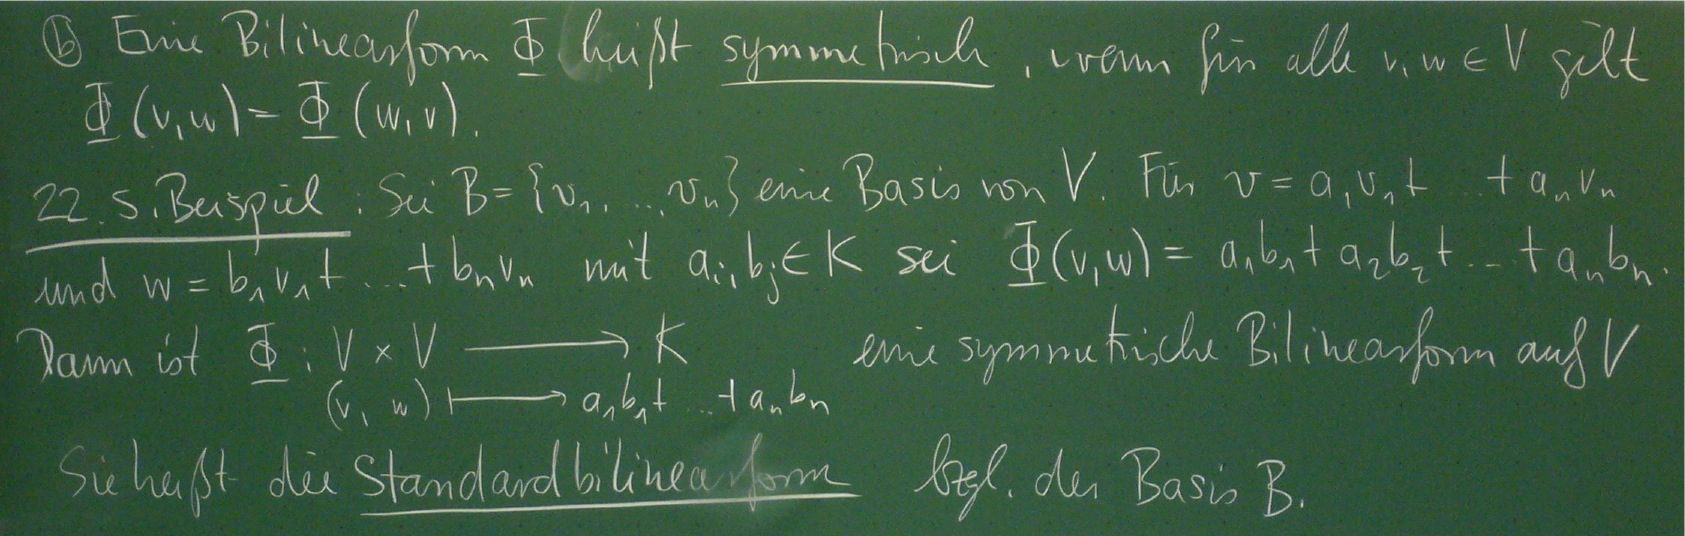 (b) Eine Bilinearform Φ heißt symmetrisch, wenn für alle v, w ∈ V gilt
Φ(v,w) = Φ(w,v).
22.5. Beispiel: Sei B = {v₁, ..., vₙ} eine Basis von V. Für v = a₁v₁ + ... + aₙvₙ
und w = b₁v₁ + ... + bₙvₙ mit aᵢ, bⱼ ∈ K sei Φ(v,w) = a₁b₁ + a₂b₂ + ... + aₙbₙ.
Dann ist Φ : V × V ⟶ K eine symmetrische Bilinearform auf V
(v, w) ⟼ a₁b₁ + ... + aₙbₙ
Sie heißt die Standardbilinearform bzgl. der Basis B.